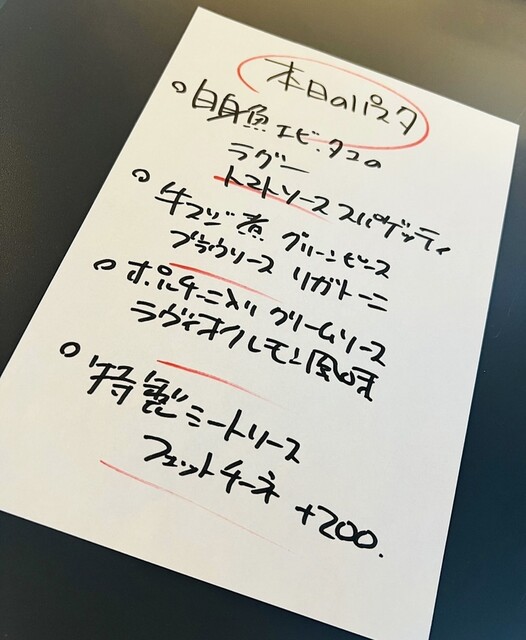 本日のパスタ
○白身魚 エビ・タコの
ラグー
トマトソース スパゲッティ
○牛スジ煮 グリーンピース
ブラウソース リガトーニ
○ポルチーニ入り クリームソース
ラヴィオリ レモン風味
○特製ミートソース
フェットチーネ +200.